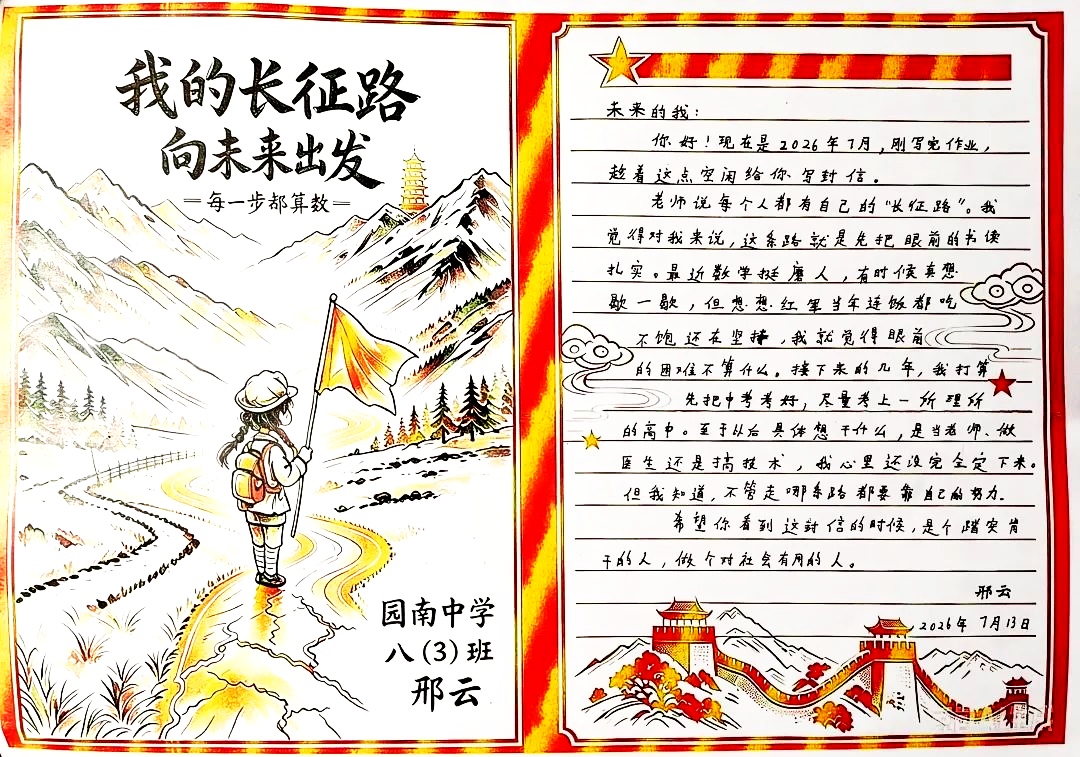 我的长征路
向未来出发
=每一步都算数=
园南中学
八(3)班
邢云
未来的我：
你好！现在是2026年7月，刚写完作业，
趁着这点空闲给你写封信。
老师说每个人都有自己的“长征路”。我
觉得对我来说，这条路就是先把眼前的书读
扎实。最近数学挺磨人，有时候真想
歇一歇，但想想红军当年连饭都吃
不饱还在坚持，我就觉得眼前
的困难不算什么。接下来的几年，我打算
先把中考考好，尽量考上一所理所
的高中。至于以后具体想干什么，是当老师、做
医生还是搞技术，我心里还没完全定下来。
但我知道，不管走哪条路都要靠自己的努力。
希望你看到这封信的时候，是个踏实肯
干的人，做个对社会有用的人。
邢云
2026年7月13日